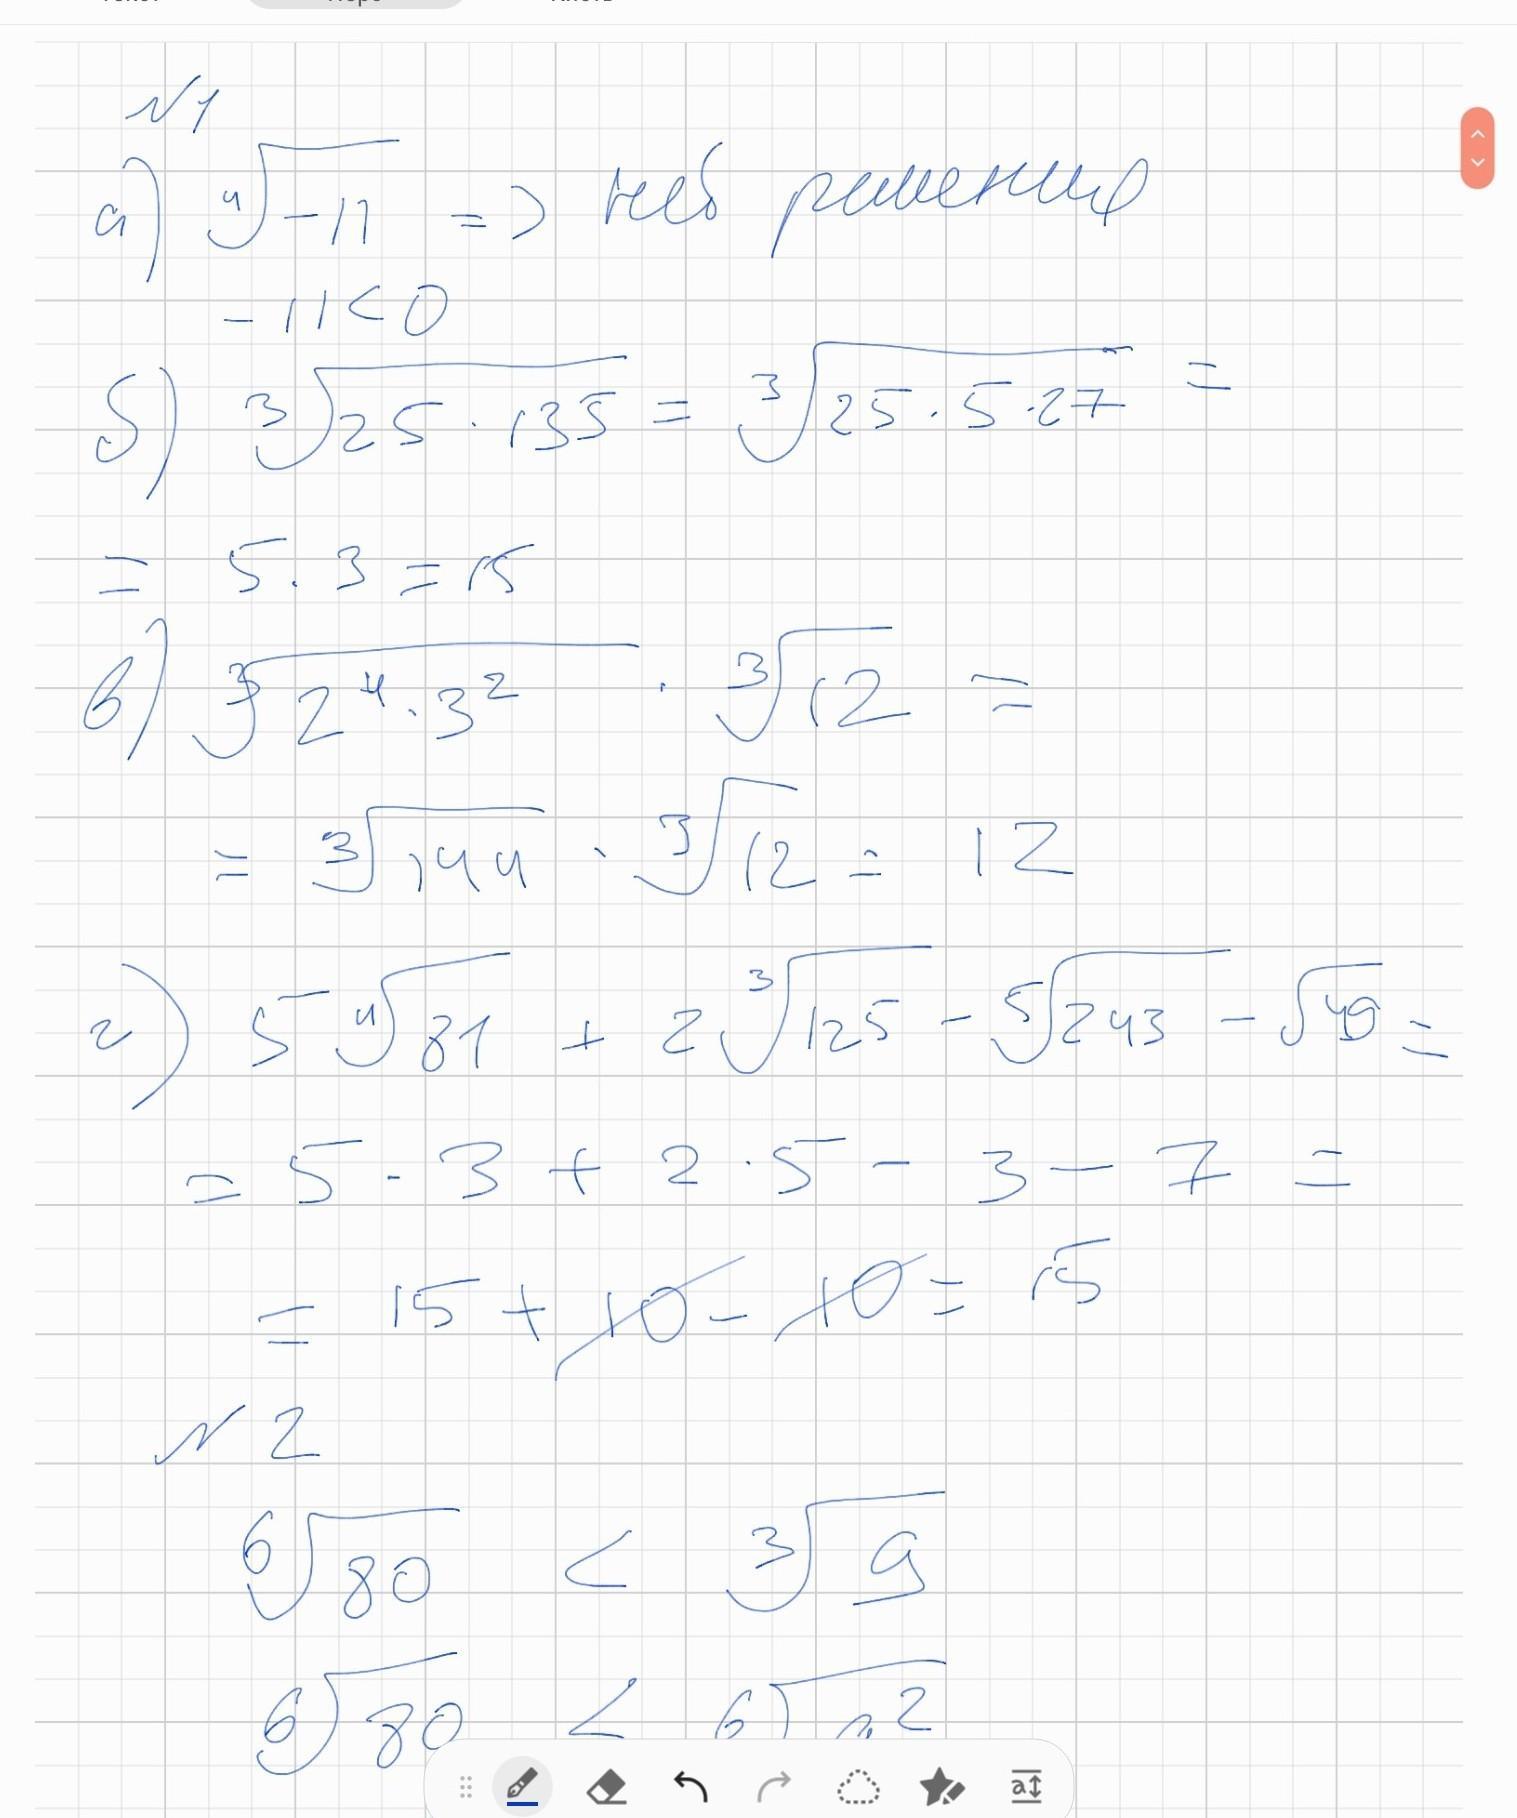 N1
а) ⁴√-11 => нет решения
-11 < 0
б) ³√25·135 = ³√25·5·27 =
= 5·3 = 15
в) ³√2⁴·3² · ³√12 =
= ³√144 · ³√12 = 12
г) 5 ⁴√81 + 2 ³√125 - ⁵√243 - √49 =
= 5·3 + 2·5 - 3 - 7 =
= 15 + 10 - 10 = 15
N 2
⁶√80 < ³√9
⁶√80 < ⁶√